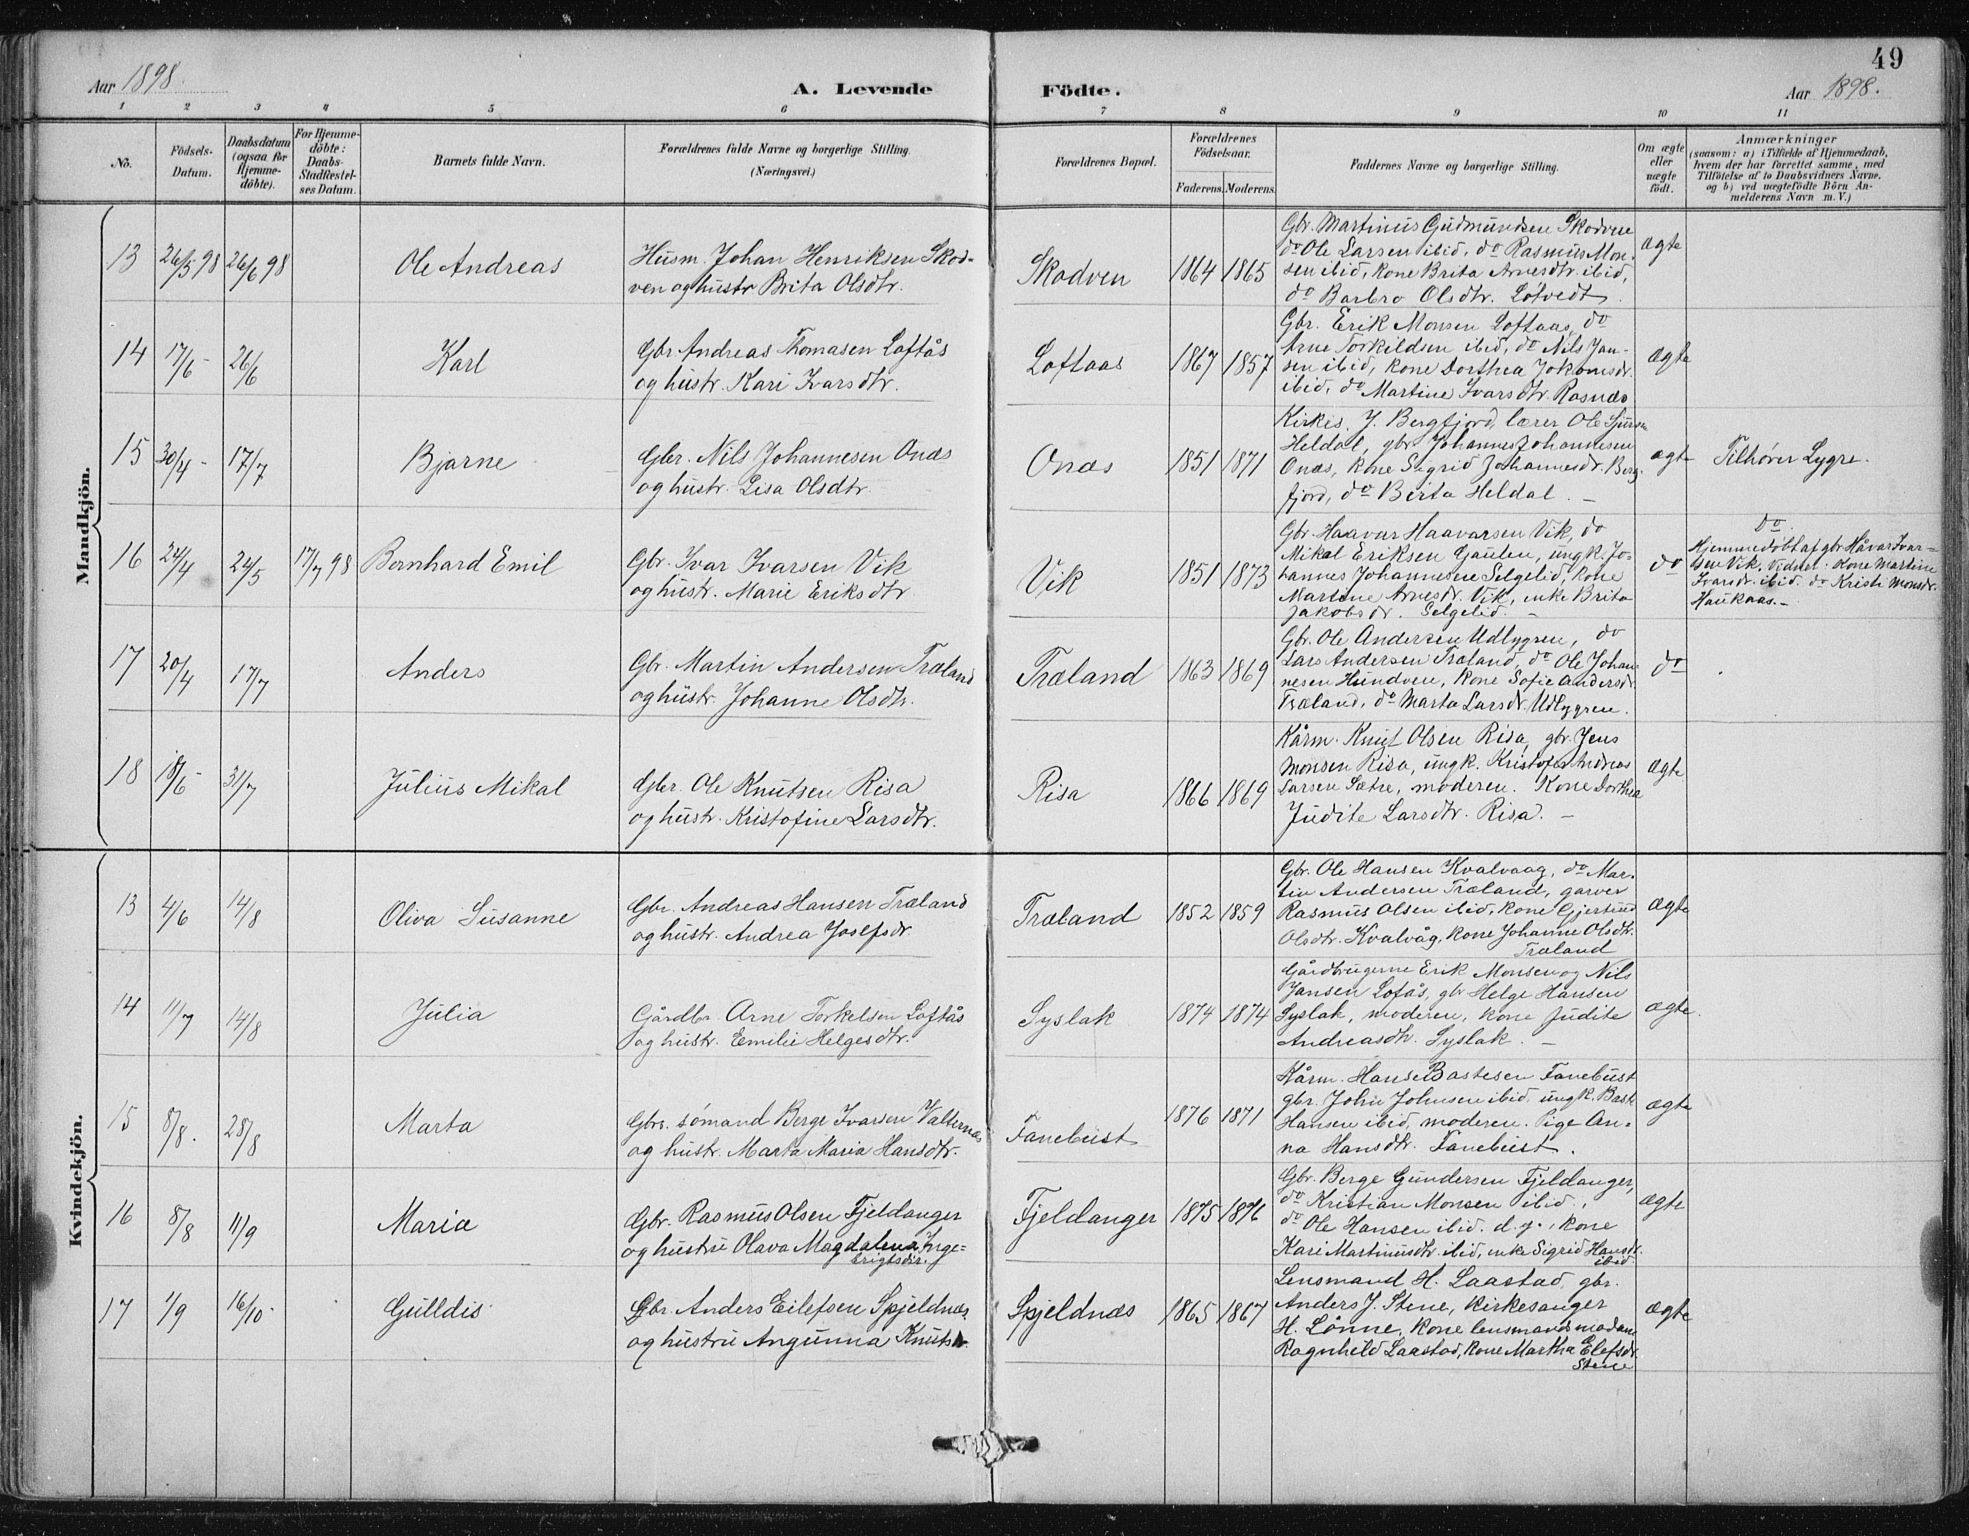 49
Aar 1898.
A. Levende Födte.
Aar 1898.
1 2 3 4 5 6 7 8 9 10 11
No.
Födsels-
Datum.
Daabsdatum
(ogsaa for
Hjemme-
döbte).
For Hjemme-
döbte:
Daabs-
Stadfæstel-
ses Datum.
Barnets fulde Navn.
Forældrenes fulde Navne og borgerlige Stilling
(Næringsvei.)
Forældrenes Bopæl.
Forældrenes
Födselsaar.
Faderens. Moderens.
Faddernes Navne og borgerlige Stilling.
Om ægte
eller
uægte
födt.
Anmærkninger
(saasom: a) i Tilfælde af Hjemmedaab,
hvem der har forrettet samme, med
Tilföielse af to Daabsvidners Navne.
og b) ved uægtefödte Börn An-
melderens Navn m. V.)
Mandkjön.
13 26/5 98 26/6 98
Ole Andreas
Husm. Johan Henriksen Skod-
ven og hustr Brita Olsdtr.
Skodven
1864 1865
Gbr. Martinus Gudmundsen Skodven
do Ole Larsen ibid, do Rasmus Mon-
sen ibid, kone Brita Arnesdtr. ibid,
do Barbro Olsdtr. Løtvedt.
ægte
14 17/6 - 26/6
Karl
Gbr Andreas Thomasen Loftås
og hustr. Kari Ivarsdtr.
Loftaas
1867 1857
Gbr. Erik Monsen Loftaas, do
Arne Torkildsen ibid, do Nils Jan-
sen ibid, kone Dorthea Jokomsdr.
ibid, do Martine Ivarsdtr. Rosnæs
ægte
15 30/4 - 17/7
Bjarne
Gbr. Nils Johannesen Onæs
og hustr. Lisa Olsdtr.
Onæs
1851 1871
Kirkes. J. Bergfjord, lærer Ole Sjurs
Heldal, gbr. Johannes Johannesen
Onæs, kone Sigrid Johannesdr. Berg-
fjord, do Birta Heldal. -
ægte
Tilhører Lygre.
16 24/4 24/5 17/7 98
Bernhard Emil
Gbr. Ivar Ivarsen Vik
og hustr. Marie Eriksdtr.
Vik
1851 1873
Gbr. Haavar Haavarsen Vik, do
Mikal Eriksen Gaulen, ungk. Jo-
hannes Johannesen Selgelid, kone
Martine Arnesdr. Vik, enke Brita
Jakobsdr. Selgelid. -
do
do.
Hjemmedøbt af gbr Håvar Ivar-
sen Vik. Vidner: Kone Martine
Ivarsdr. ibid. do Kristi Monsdr.
Haukaas. -
17 20/4 17/7
Anders
Gbr. Martin Andersen Træland
og hustr. Johanne Olsdtr.
Træland
1863 1869
Gbr. Ole Andersen Udlygren, do
Lars Andersen Træland, do Ole Johan-
nesen Hundven, kone Sofie Andersdr.
Træland, do Marta Larsdr. Udlygren.
do
18 18/6 - 31/7
Julius Mikal
Gbr. Ole Knutsen Risa
og hustr. Kristofine Larsdtr.
Risa
1866 1869
Kårm. Knut Olsen Risa, gbr. Jens
Monsen Risa, ungk. Kristofer Andreas
Larsen Sætre, moderen. Kone Dorthea
Judite Larsdtr. Risa. -
ægte
Kvindekjön.
13 4/6 14/8
Oliva Susanne
Gbr. Andreas Hansen Træland
og hustr. Andrea Josefsdr.
Træland
1852 1859
Gbr. Ole Hansen Kvalvaag, do Mar-
tin Andersen Træland, garver
Rasmus Olsen ibid, kone Gjertrud
Olsdtr. Kvalvåg, kone Johanne Olsdtr.
Træland
ægte
14 11/7 14/8
Julia
Gårdbr. Arne Torkelsen Loftås
og hustr. Emilie Helgesdtr.
Syslak
1874 1874
Gårdbrugerne Erik Monsen og Nils
Jansen Lofås, gbr Helge Hansen
Syslak, moderen, kone Judite
Andreasdtr. Syslak. -
ægte.
15 8/8. 28/8
Marta
Gbrs. sømand Berge Ivarsen Valternæs
og hustr. Marta Maria Hansdtr.
Fanebust
1876 1871
Kårm. Hans Bastesen Fanebust
gbr. John Johnsen ibid. ungk. Bast
Hansen ibid, moderen. Pige An-
na Hansdtr. Fanebust.
ægte
16 8/8 11/9
Maria
Gbr. Rasmus Olsen Fjeldanger
og hustru Olava Magdalena Inge=
brigtsdtr.
Fjeldanger
1875 1876
Gbr. Berge Gundersen Fjeldanger,
do Kristian Monsen ibid.,
do Ole Hansen ibid. d.y., kone
Kari Martinusdtr. ibid, enke Sigrid Hansdr.
ibid
ægte
17 1/9 16/10.
Gulldis
Gbr. Anders Eilefsen Spjeldnæs
og hustru Angunna Knutsdr.
Spjeldnæs
1865 1867
Lensmand H. Laastad, gbr.
Anders J. Stene, kirkesanger
H. Lønne, kone lensmandsmadam
Ragnhild Laastad, kone Martha Elefsdr.
Stene
ægte